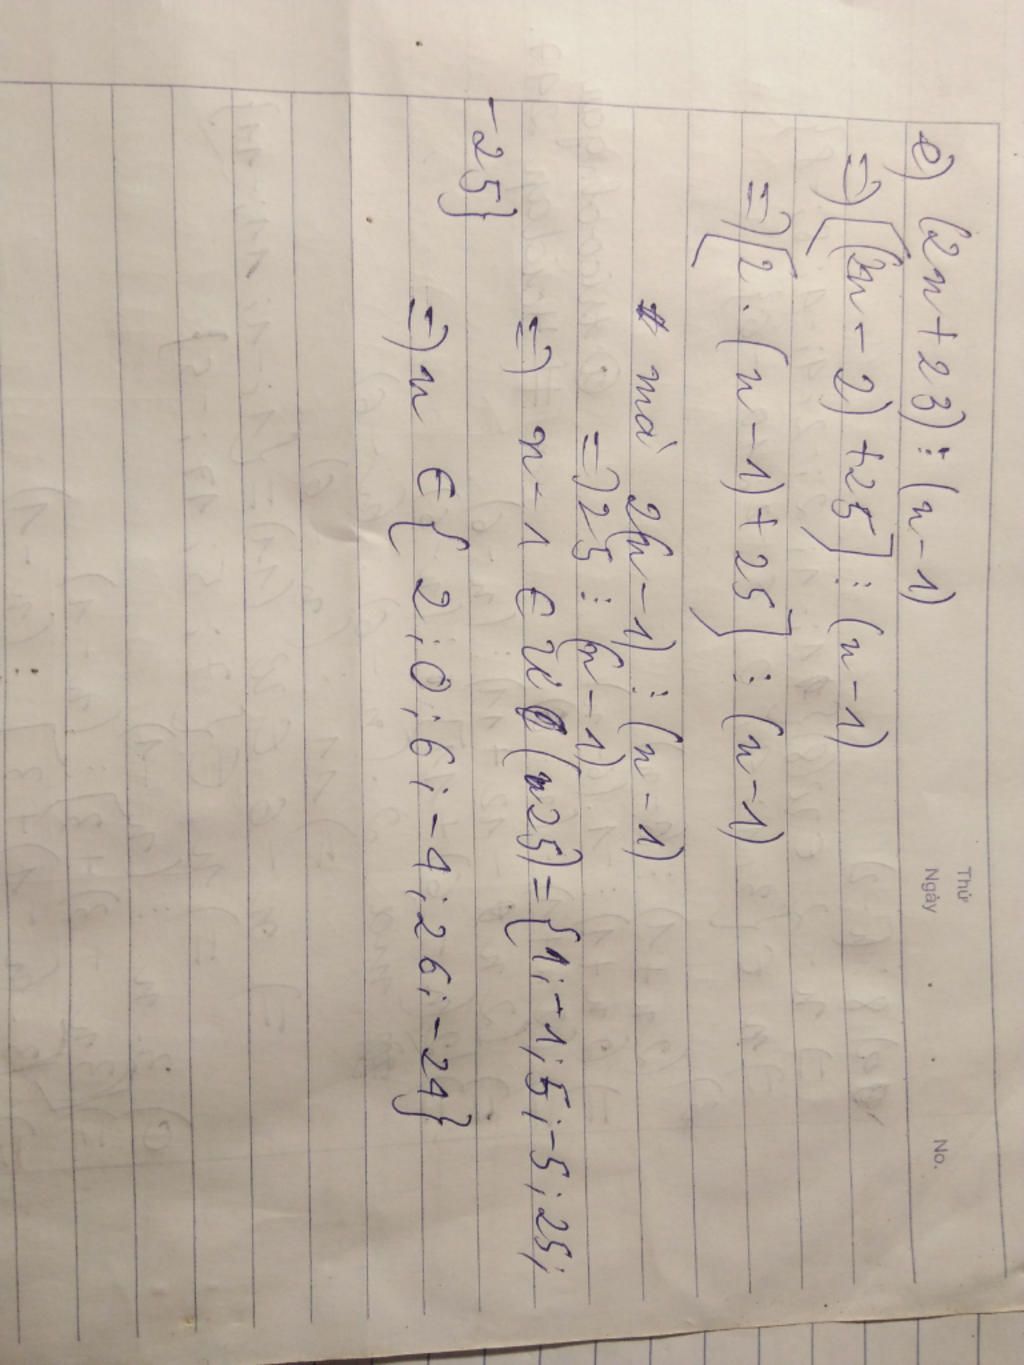 Thứ
Ngày
No.
e) (2n+23) ⋮ (n-1)
=> [(2n-2)+25] ⋮ (n-1)
=> [2.(n-1)+25] ⋮ (n-1)
mà 2(n-1) ⋮ (n-1)
=> 25 ⋮ (n-1)
=> n-1 ∈ Ư(25) = {1; -1; 5; -5; 25;
-25}
=> n ∈ {2; 0; 6; -4; 26; -24}